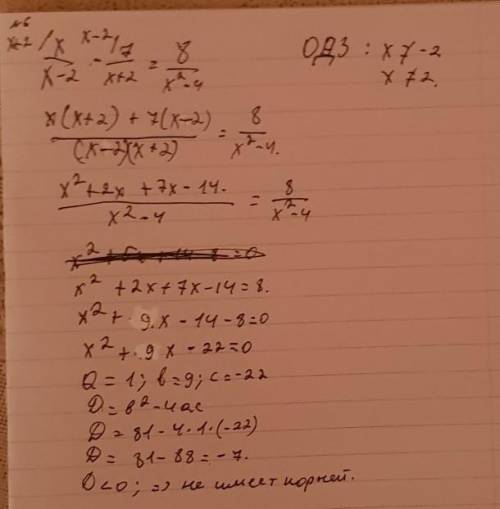 №6
x+2/ x/(x-2) - x-2/ 7/(x+2) = 8/(x²-4)
ОДЗ : x ≠ -2
x ≠ 2.
(x(x+2) + 7(x-2))/((x-2)(x+2)) = 8/(x²-4.)
(x²+2x +7x-14.)/(x²-4) = 8/(x²-4)
x² +2x+7x-14=8.
x²+ 9x-14-8=0
x²+ 9x-22=0
a=1; b=9; c=-22
D=b²-4ac
D=81-4·1·(-22)
D= 81-88=-7.
D<0; => не имеет корней.